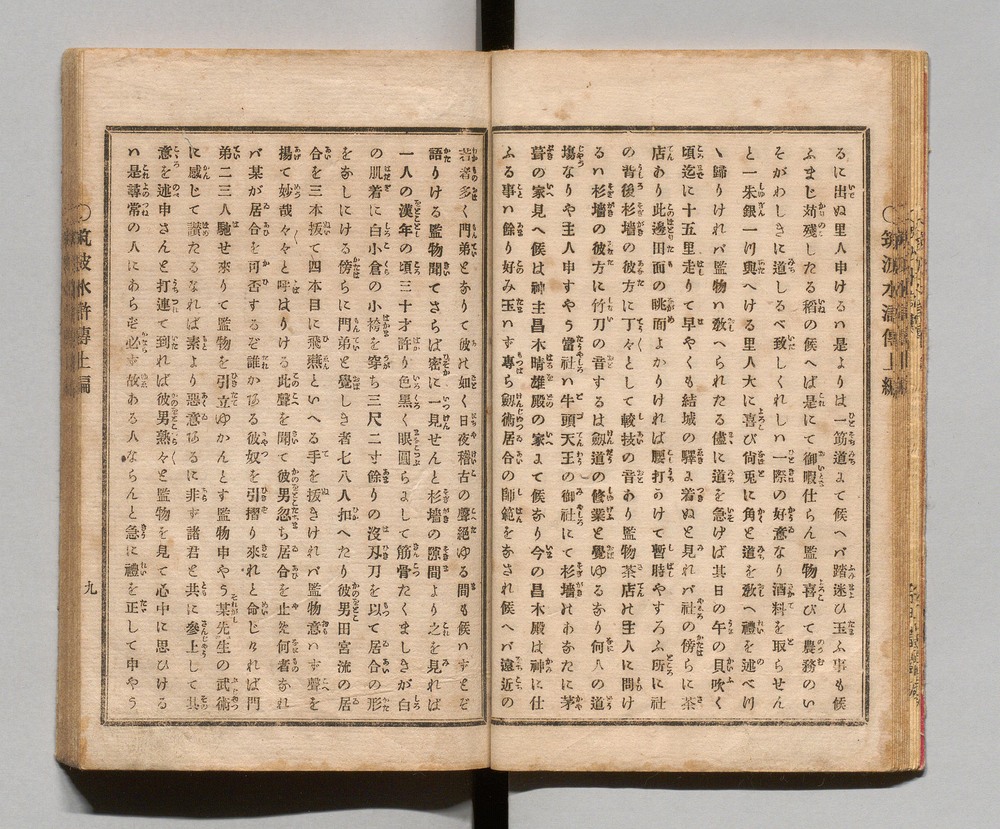 るに出ぬ里人申けるハ是よりは一筋道まて候へバ踏迷ひ玉ふ事も候
ふまじ苅殘したる稻の候へば是にて御暇仕らん監物喜びて農務のい
そがわしきに道しるべ致しくれしハ一際の好意なり酒料を取らせん
と一朱銀一ツ與へける里人大に喜び尙兎に角と道を敎へ禮を述べ
ヽ歸りけれバ監物ハ敎へられたる儘に道を急げば其日の午の貝吹く
頃迄に十五里走りて早やくも結城の驛ま着ぬと見れバ社の傍らに茶
店あり此邊田面の眺面よかりければ腰打うけて暫時やすろふ所に社
の背後杉墻の彼方に丁々として較技の音あり監物茶店の主人に問け
るハ杉墻の彼方に竹刀の音するは劔道の修業と覺ゆるなり何人の道
塲なりや主人申すやう當社ハ牛頭天王の御社にて杉墻のあなたに茅
葺の家見へ候は神主昌木晴雄殿の家まて候なり今の昌木殿は神に仕
ふる事ハ餘り好み玉ハず專ら劔術居合の師範をなされ候へバ遠近の
若者多く門弟となりて彼れ如く日夜稽古の聲絕ゆる間も候ハずとぞ
語りける監物聞てさらば密に一見せんと杉墻の隙間より之を見れば
一人の漢年の頃三十才許り色黒く眼圓らまして筋骨たくましきが白
の肌着に白小倉の小袴を穿ち三尺二寸餘りの沒刃刀を以て居合の形
をなしにける傍らに門弟と覺しき者七八人扣へたり彼男田宮流の居
合を三本拔て四本目に飛燕といへる手を拔きけれバ監物意ハず聲を
揚て妙哉々々と呼はりける此聲を聞て彼男忽ち居合を止め何者なれ
バ某が居合を可否するぞ誰かある彼奴を引摺り來れと命じければ門
弟二三人馳せ來りて監物を引立ゆかんとす監物申やう某先生の武術
に感じて讃たるなれば素より惡意あるに非ず諸君と共に參上して其
意を述申さんと打連て到れば彼男熟々と監物を見て心中に思ひける
ハ是尋常の人にあらず必ず故ある人ならんと急に禮を正して申やう
九
筑波水滸傳上編